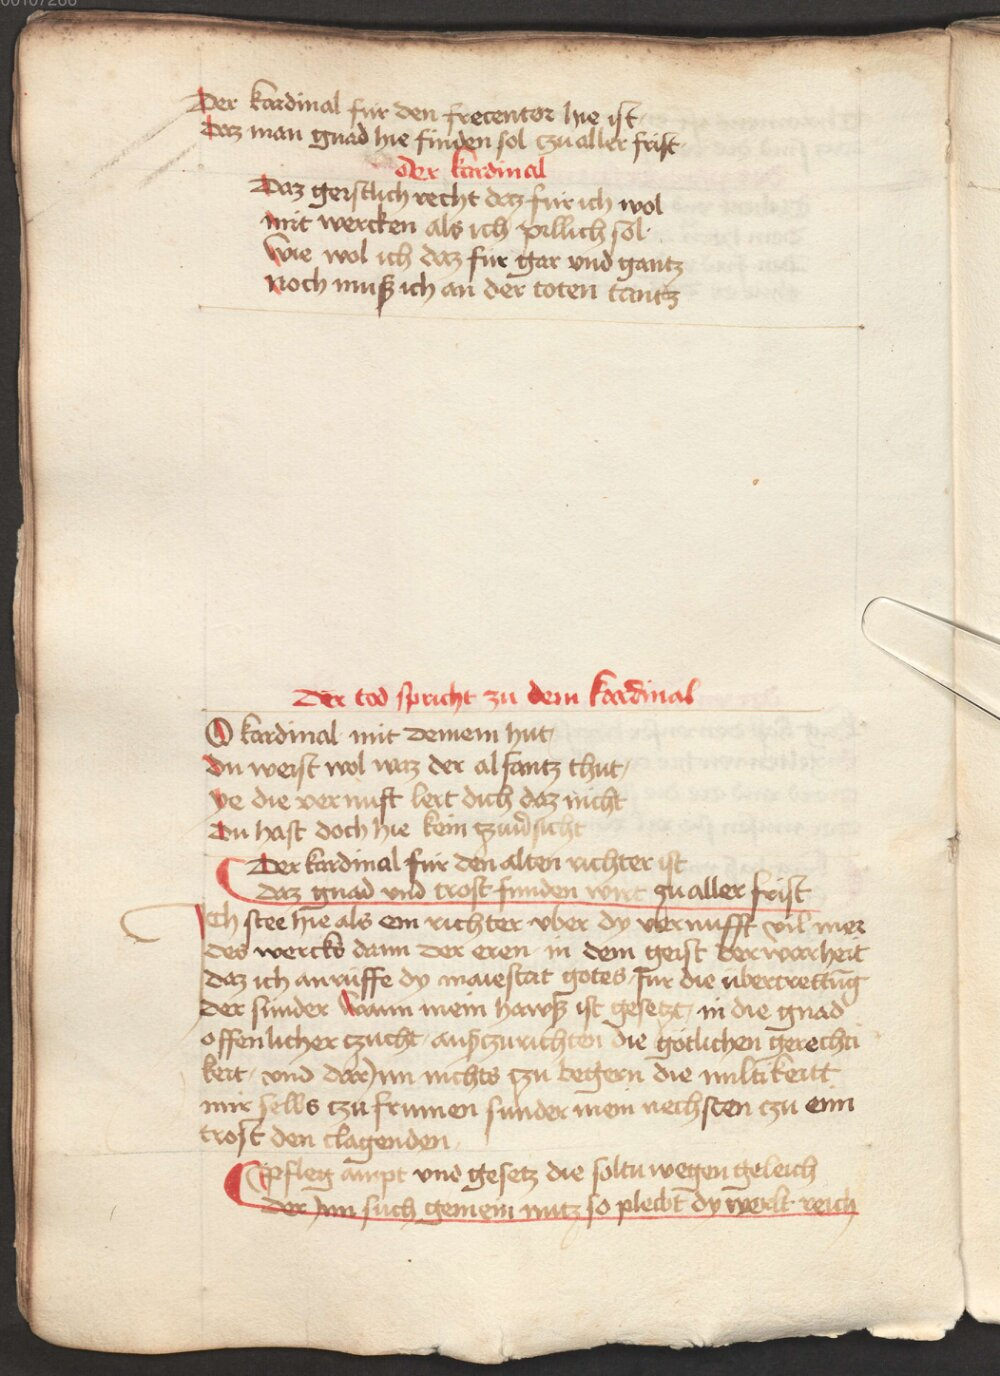 00107266
Der kardinal fur den frecentor hie ist
Daz man gnad hie finden sol czu aller frist
Der kardinal
Daz geistlich recht daz fur ich wol
mit wercken als ich pillich sol
wie wol ich daz für gar vnd gantz
noch muß ich an der toten tantz
Der tod spricht zu dem kardinal
O kardinal mit deinem hut
du weist wol waz der alfantz thut
ye die vernuft lert dich daz nicht
Du hast doch hie kein
Der kardinal für den alten richter ist
daz gnad vnd trost funden wirt zu aller frist
Ich stee hie als ein richter vber dy vernufft vil mer
des wercks dann der eren in dem geist der warheit
daz ich anrüffe dy maiestat gotes für die übertrettūg
der sünder wann mein hawß ist gesetzt in die gnad
offenlicher czucht außczurichten die götlichen gerechti
keit vnd dar Inn nichts czu begern die miltikeitt
mir selbs czu frumen sunder mein nechsten czu eim
trost den clagenden
Pfleg ampt vnd gesetz die soltu wegen geleich
der Inn such gemein nutz so pleibt dy werlt reich